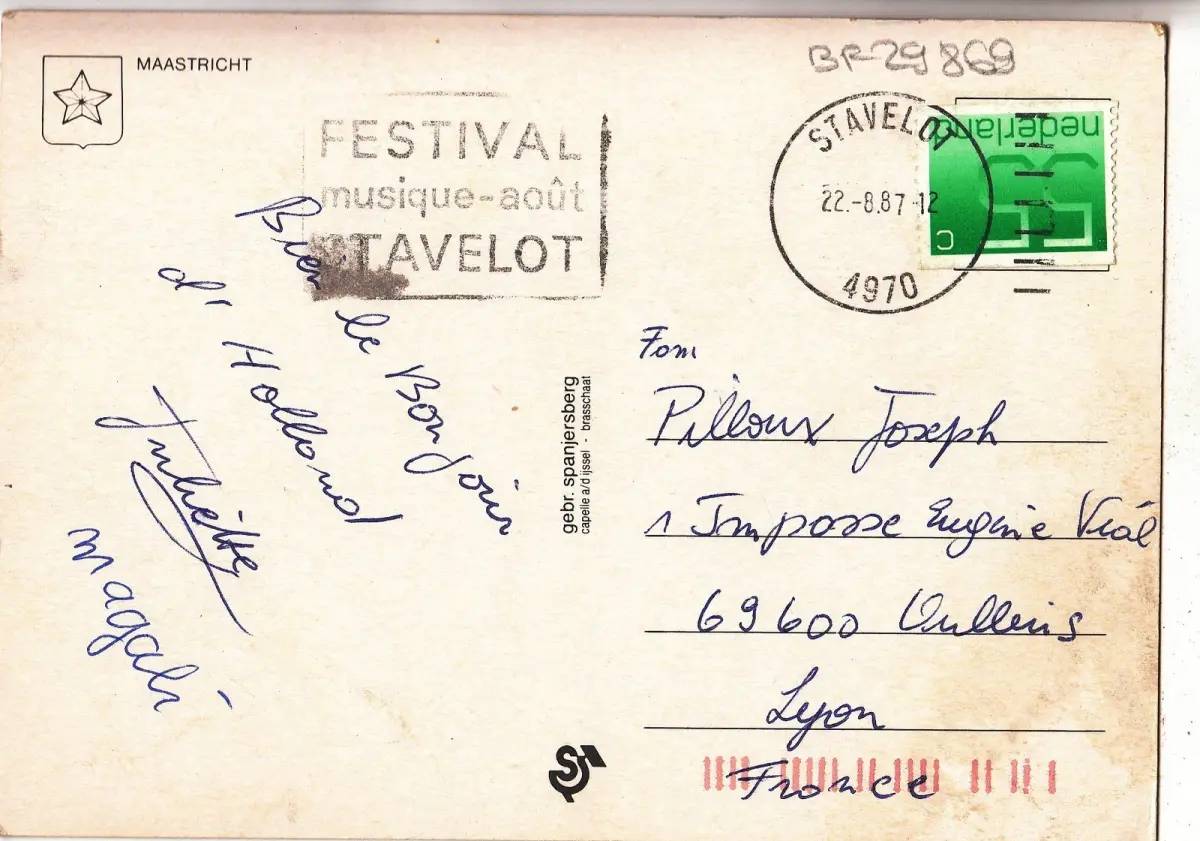 MAASTRICHT
BR29869
FESTIVAL
musique-août
STAVELOT
STAVELOT
22.-8.87-12
4970
nederland
55 c
Bien le Bonjour
d' Holland
Juliette
magali
gebr. spanjersberg
capelle a/d ijssel - brasschaat
Fam
Pilloux Joseph
1 Impasse Eugène Vial
69600 Oullins
Lyon
France